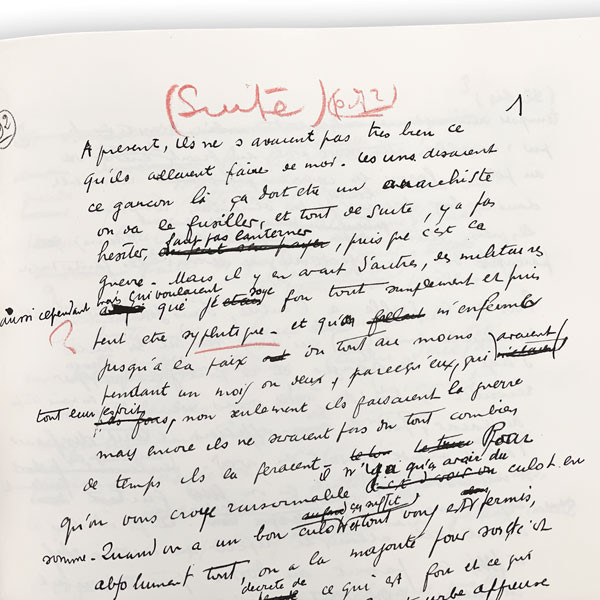 (Suite) (p. 92)
1
92
A present, ils ne savaient pas très bien ce
qu'ils allaient faire de moi. Les uns disaient
ce garçon là ça doit être un anarchiste
on va le fusiller, et tout de suite, y a pas
hesiter, faut pas lanterner, puisque c'est la
guerre - Mais il y en avait d'autres, des militaires
aussi cependant mais qui voulaient que je soye fou tout simplement et puis
peut etre syphilitique - et qu'on m'enferme
jusqu'à la paix ou tout au moins
pendant un mois ou deux, parce qu'eux, qui avaient
tout leur esprit, non seulement ils faisaient la guerre
mais encore ils ne savaient pas du tout combien
de temps ils la feraient - Pour
qu'on vous croye raisonnable il n'y a qu'à avoir du culot en
somme - Quand on a un bon culot ça suffit tout vous est permis,
absolument tout, on a la majorité pour soi et
decrete de ce qui est fou et ce qui
affreuse